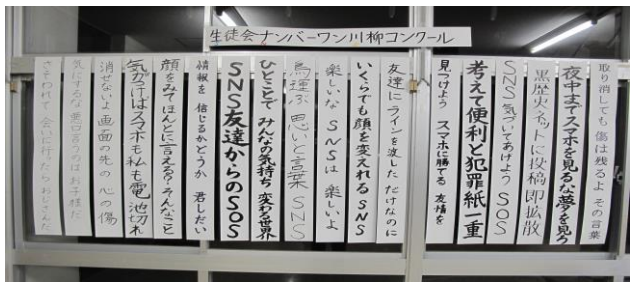 生徒会ナンバーワン川柳コンクール
取り消しても 傷は残るよ その言葉
夜中までスマホを見るな夢を見ろ
黒歴史ネットに投稿即拡散
SNS 気づいてあげよう SOS
考えて便利と犯罪紙一重
見つけよう スマホに勝てる 友情を
友達にラインを渡した だけなのに
いくらでも顔を変えれるSNS
楽しいな SNSは 楽しいよ
思いと言葉 SNS
ひとことで みんなの気持ち 変わる世界
SNS友達からのSOS
情報を 信じるかどうか 君しだい
顔をみてほんとに言える?そんなこと
気がつけばスマホも私も電池切れ
消せないよ 画面の先の 心の傷
気にするな 悪口言うのはお子様だ
さそわれて 会いに行ったら おじさんだ